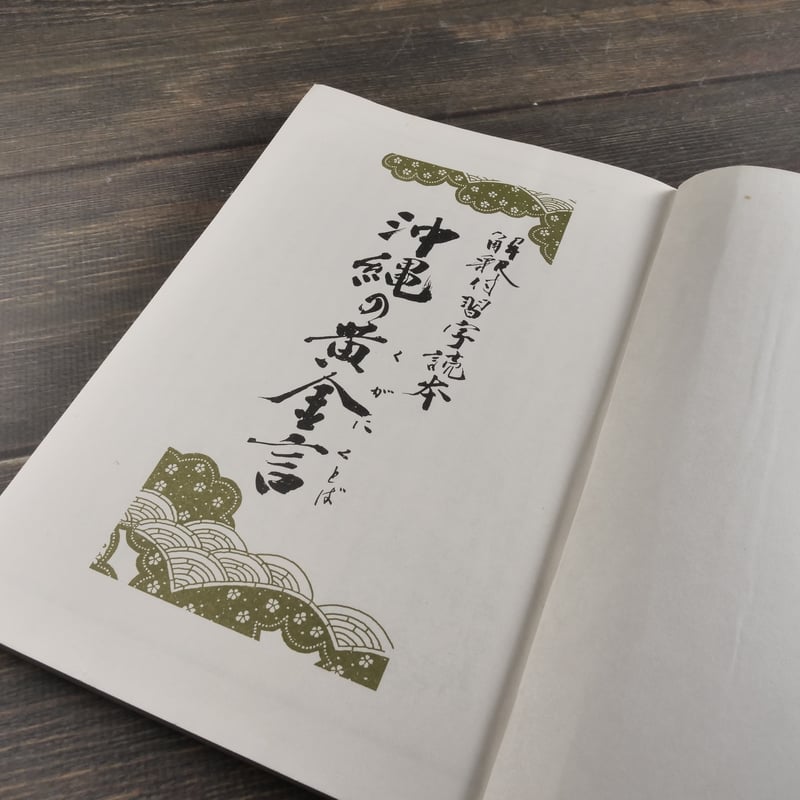 解釈付習字読本
沖縄の黄金言
くがにくとば